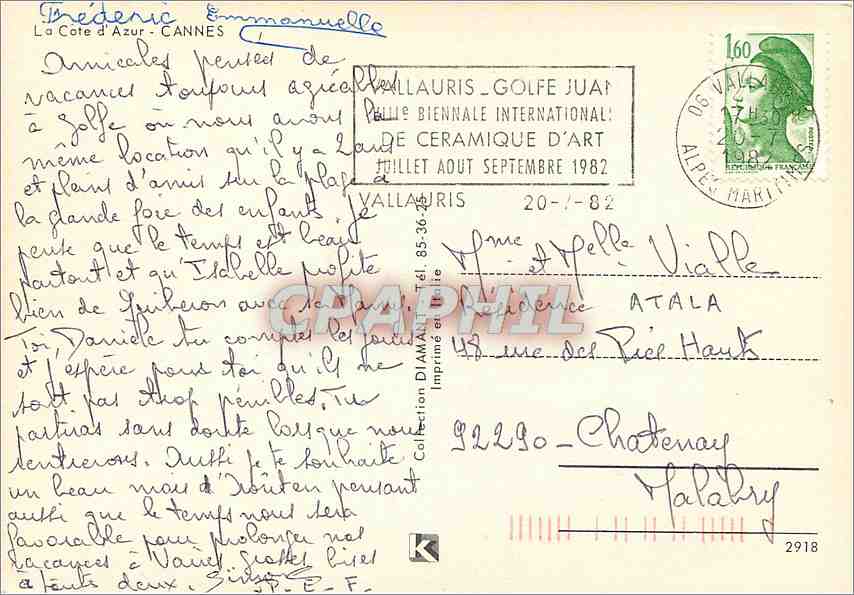 Fréderic Emmanuelle
La Cote d'Azur - CANNES
Amicales pensées de
vacances toujours agréables
à Golfe où nous avons la
même location qu'il y a 2 ans
et pleins d'amis sur la plage à
la grande joie des enfants. Je
pense que le temps est beau
partout et qu'Isabelle profite
bien de Quiberon avec sa
Toi, Danièle tu comptes les jours
et j'espère pour toi qu'ils ne
sont pas trop pénibles. Tu
partiras sans doute lorsque nous
rentrerons. Aussi je te souhaite
un beau mois d'Août en pensant
aussi que le temps nous sera
favorable pour prolonger nos
vacances à grosses bises
à toutes deux.
P. E. F.
VALLAURIS _ GOLFE JUAN
VIIIe BIENNALE INTERNATIONALE
DE CERAMIQUE D'ART
JUILLET AOUT SEPTEMBRE 1982
VALLAURIS 20-7-82
1,60
REPUBLIQUE FRANÇAISE
06 VALLAURIS
17H30
20-7
1982
ALPES MARITIMES
Collection DIAMANT - Tél. 85-36-25
Imprimé en Italie
CPAPHIL
Mme et Melle Vialle
Résidence ATALA
48 rue des Prés Hauts
92290 - Chatenay
Malabry
K
2918